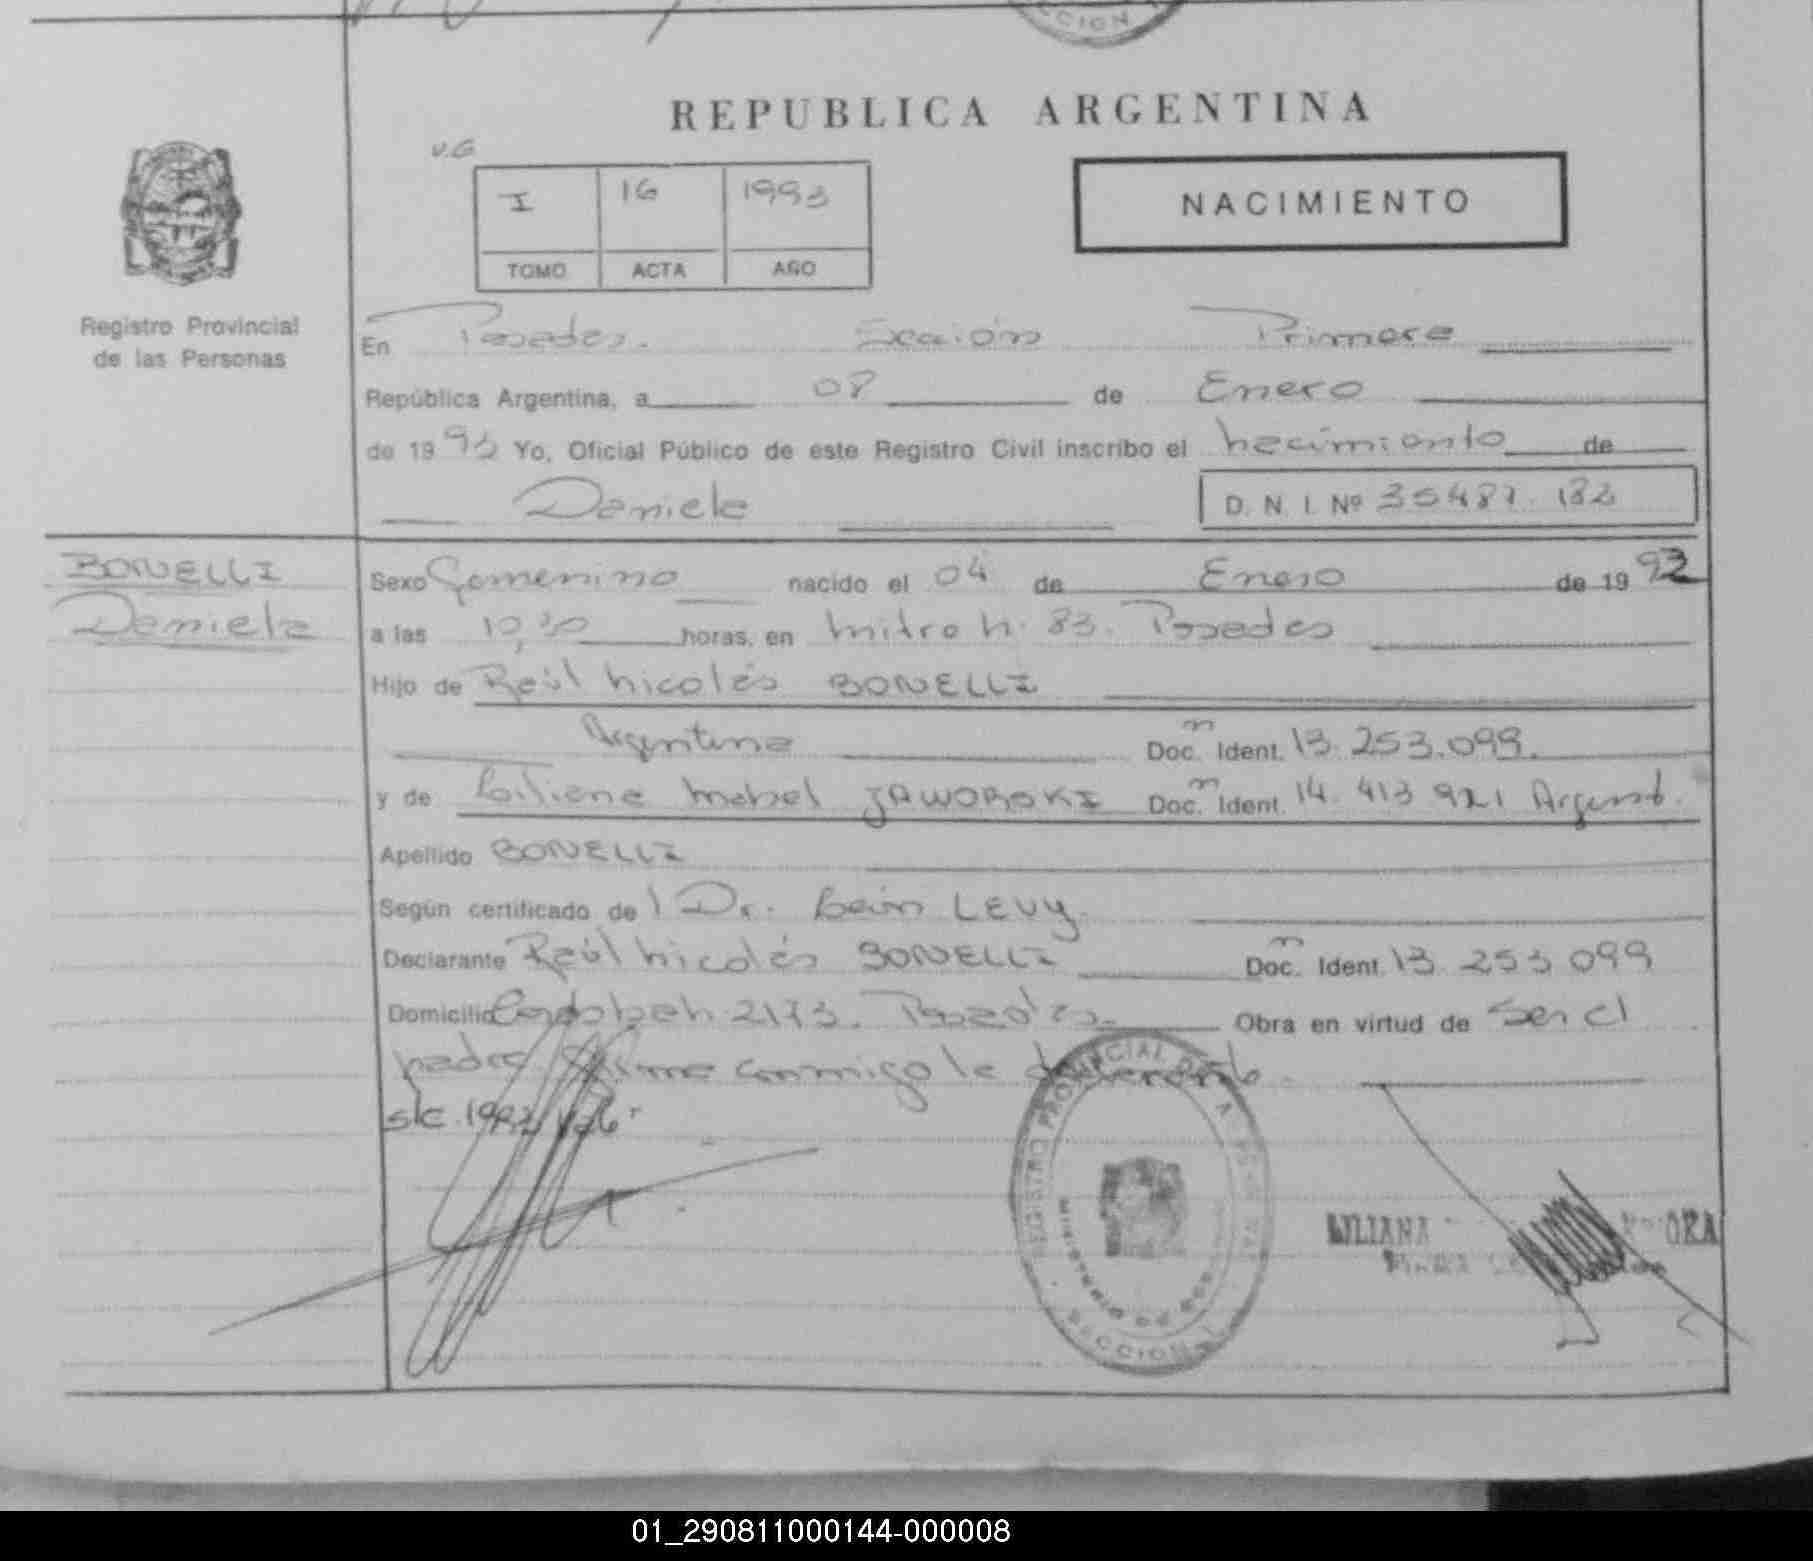 CCION
REPUBLICA ARGENTINA
V.G
I 16 1993
TOMO ACTA AÑO
NACIMIENTO
Registro Provincial
de las Personas
En Posadas. Sección Primera
República Argentina, a 08 de Enero
de 1993 Yo, Oficial Público de este Registro Civil inscribo el nacimiento de
Daniela D. N. I. Nº 35487.132
BONELLI
Daniela
Sexo Femenino nacido el 04 de Enero de 1992
a las 10,30 horas, en Mitre N. 83. Posadas
Hijo de Raúl Nicolás BONELLI
Argentina Doc. Ident. 13.253.099.
y de Liliana Mabel JAWORSKI Doc. Ident. 14.413 921 Argent.
Apellido BONELLI
Según certificado del Dr. León LEVY.
Declarante Raúl Nicolás BONELLI Doc. Ident. 13.253 099
Domicilio Cordoba N. 2173. Posadas. Obra en virtud de Ser el
padre. Firma conmigo le
s/c. 1992
REGISTRO PROVINCIAL DE LAS PERSONAS
MINISTERIO DE
SECCION
LILIANA
01_290811000144-000008